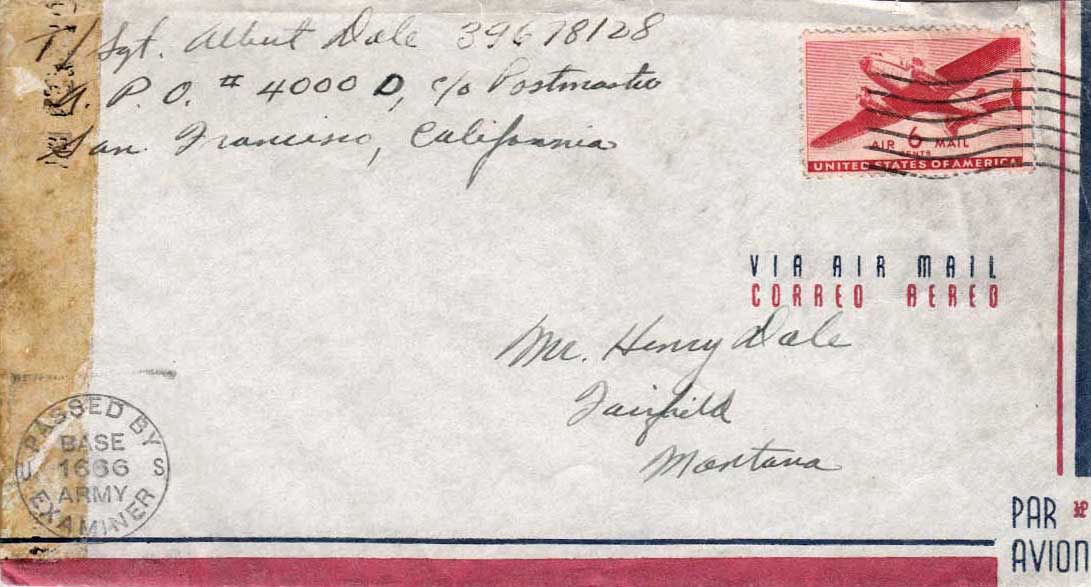 T/Sgt. Albert Dale 39678128
A. P. O. # 4000 D, c/o Postmaster
San Francisco, California
AIR 6 MAIL
CENTS
UNITED STATES OF AMERICA
VIA AIR MAIL
CORREO AEREO
Mr. Henry Dale
Fairfield
Montana
PASSED BY
BASE
1666
ARMY
EXAMINER
U S
PAR
AVION